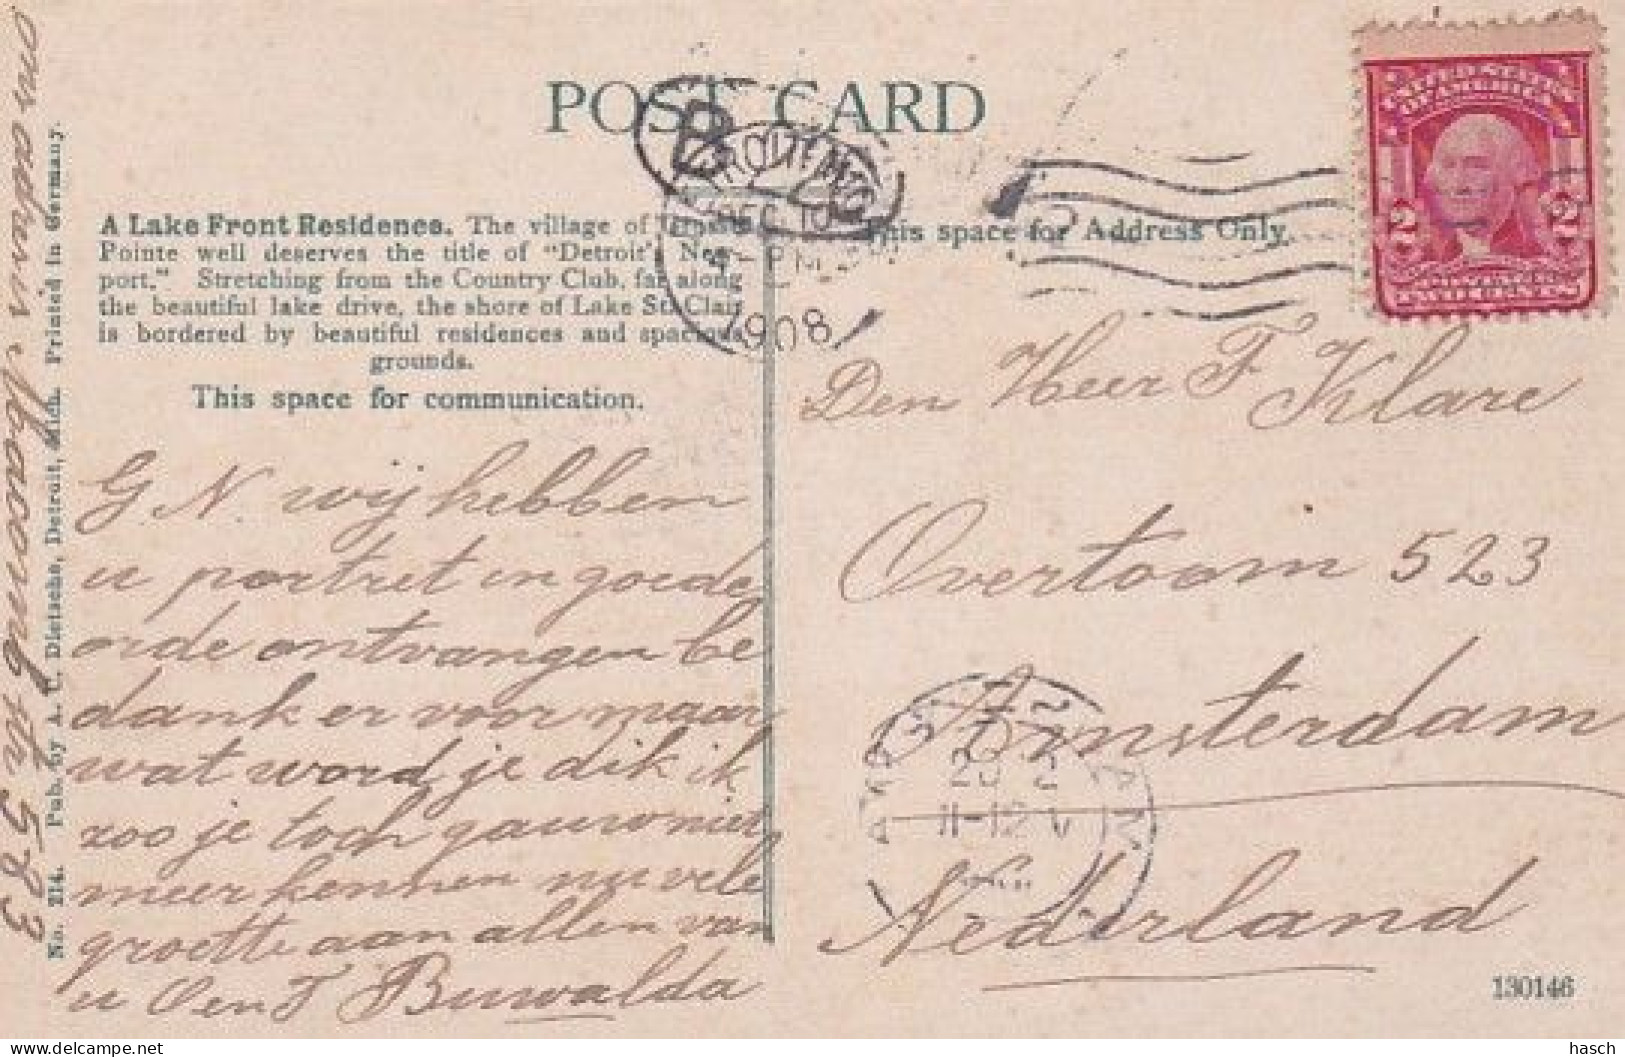 POST CARD
A Lake Front Residence. The village of Grosse
Pointe well deserves the title of "Detroit's New-
port." Stretching from the Country Club, far along
the beautiful lake drive, the shore of Lake St. Clair
is bordered by beautiful residences and spacious
grounds.
This space for communication.
This space for Address Only.
UNITED STATES
OF AMERICA
2 2
DEC 10
1908
G. N. wij hebben
u portret in goede
orde ontvangen be
dank er voor maar
wat word je dik ik
zoo je toch gauw niet
meer kennen nu vele
groette aan allen van
u Oen T Buwalda
ons adres Macomb str 583
Den Heer F Klare
Overtoom 523
Amsterdam
Nederland
11-12 V
No. 214. Pub. by A. C. Dietsche, Detroit, Mich. Printed in Germany.
130146
hasch